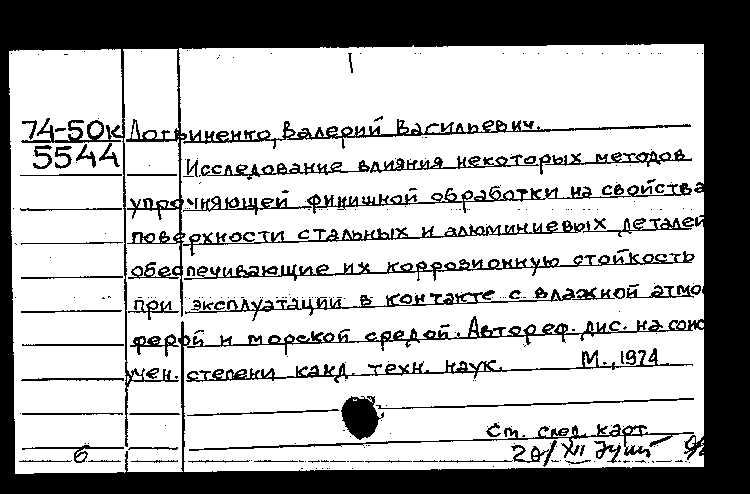 74-50к Логвиненко, Валерий Васильевич.
5544 Исследование влияния некоторых методов
упрочняющей финишной обработки на свойства
поверхности стальных и алюминиевых деталей
обеспечивающие их коррозионную стойкость
при эксплуатации в контакте с влажной атмо
ферой и морской средой. Автореф. дис. на соис
учен. степени канд. техн. наук. М., 1974
См. след. карт.
6 20/XII